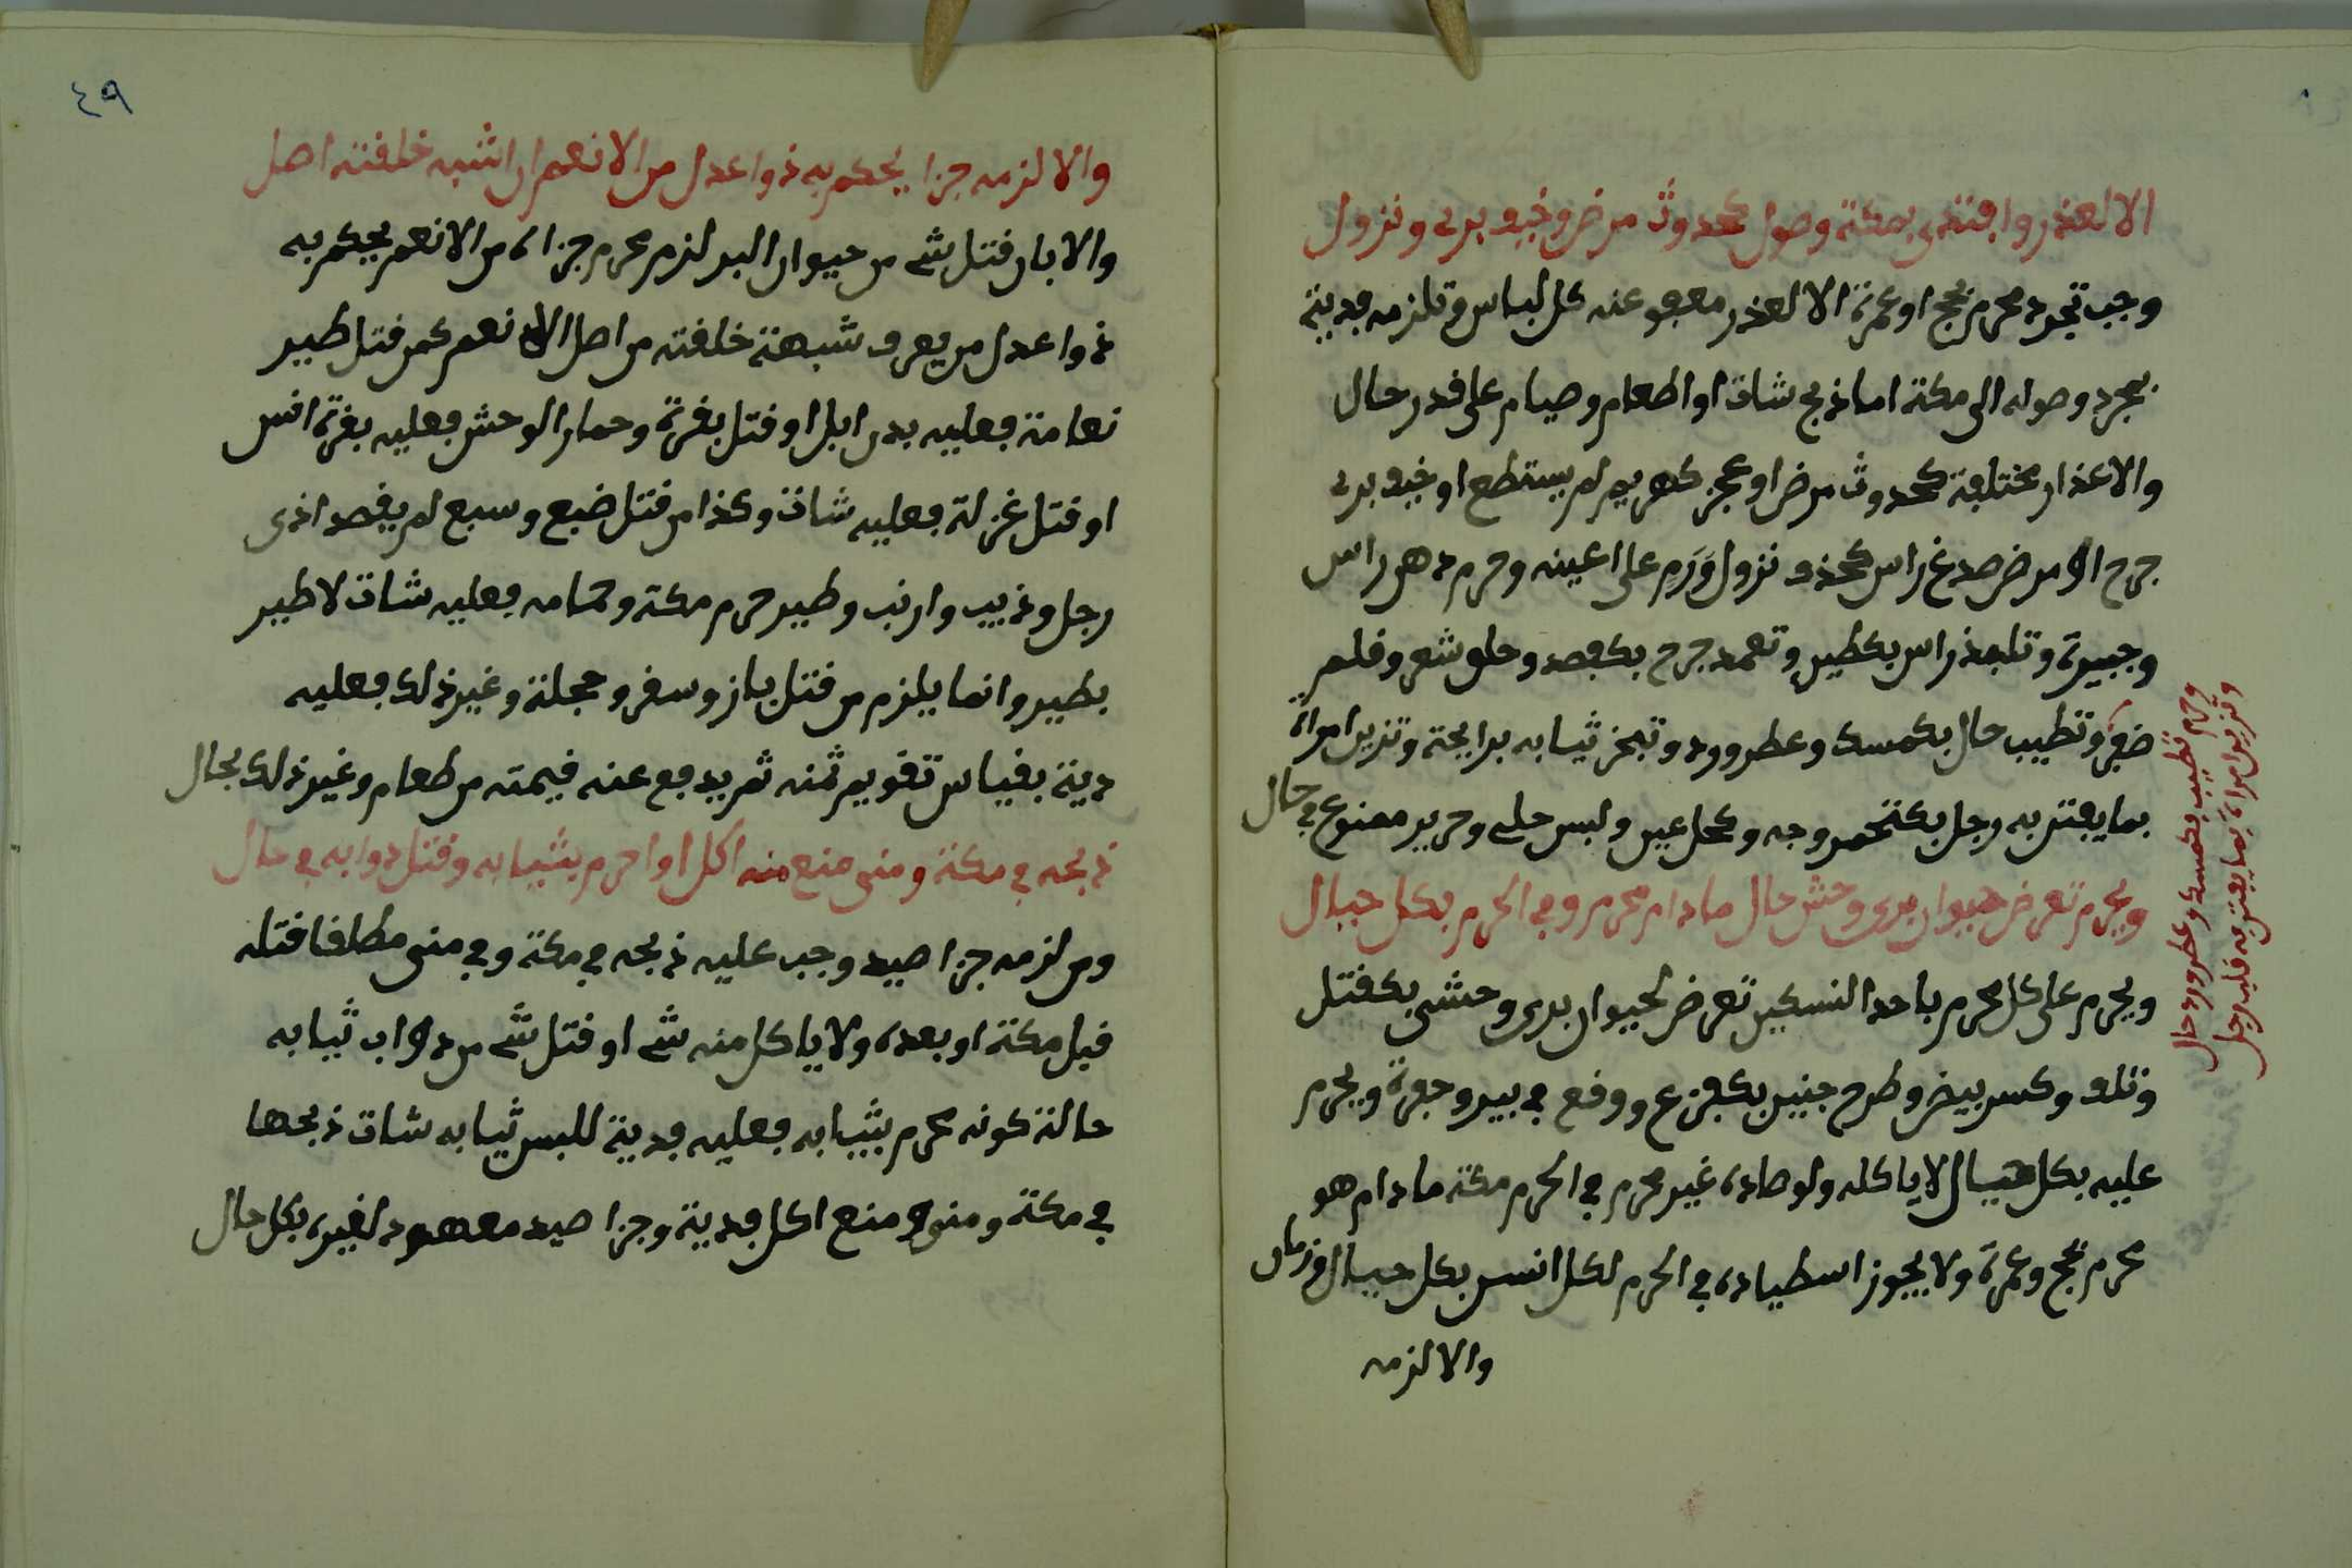 الا لعذر وافتدى بمكة وصول كحدوث مرض وخوف برد ونزول
وجب تجرد محرم بحج او عمرة الا لعذر معفو عنه كل لباس وتلزمه فدية
بمجرد وصوله الى مكة اما ذبح شاة او اطعام وصيام على قدر حال
والاعذار مختلفة كحدوث مرض او عجز كهريم لم يستطع او خوف برد
جرح او مرض صدغ راس كحذف نزول ورم على اعينه وحرم دهن راس
وجبيرة وتلبد راس بكطين وتعمد جرح بكفصد وحلق شعر وقلم
ضفر وتطيب حال بكمسك وعطر وورد وتبخر ثيابه برايحة وتزين امراة
بما يفتن به رجل بكتخمر وجه وكحل عين ولبس حلي وحرير ممنوع في حال
ويحرم تعرض حيوان بري وحش حال ما دام محرم وفي الحرم بكل حيال
ويحرم على كل محرم باحد النسكين تعرض لحيوان بري وحشي بكقتل
وتلف وكسر بيض وطرح جنين بكفزع ووقع في بير وحفرة ويحرم
عليه بكل حيال لا ياكله ولو صاده غير محرم في الحرم مكة ما دام هو
محرم بحج وعمرة ولا يجوز اسطياده في الحرم لكل انس بكل حيال وزمان
والا لزمه
وحرم تطيب بكمسك وعطر وورد حال
وتزين امراة بما يفتن به قلب رجل
٤٩
والا لزمه جزا يحكم به ذوا عدل من الانعم ان اشبه خلقته اصل
والا بان قتل شي من حيوان البر لزم محرم جزاه من الانعم يحكم به
ذوا عدل من يعرف شبهة خلقته من اصل الانعم كمن قتل طير
نعامة فعليه بدن ابل او قتل بقرة وحمار الوحش فعليه بقرة انس
او قتل غزلة فعليه شاة وكذا من قتل ضبع وسبع لم يقصد اذى
رجل وذيب وارنب وطير حرم مكة وحمامه فعليه شاة لا طير
بطير وانما يلزم من قتل باز وسقر وحجلة وغير ذلك فعليه
دية بقياس تقويم ثمنه ثم يدفع عنه قيمته من طعام وغير ذلك بحال
ذبحه في مكة ومنى منع منه اكل او احرم بثيابه وقتل دوابه في حال
ومن لزمه جزا صيد وجب عليه ذبحه في مكة وفي منى مطلقا قتله
قبل مكة او بعده ولا ياكل منه شي او قتل شي من دواب ثيابه
حالة كونه محرم بثيابه فعليه فدية للبس ثيابه شاة ذبحها
في مكة ومنى و منع اكل فدية وجزا صيد معهود لغيره بكل حال